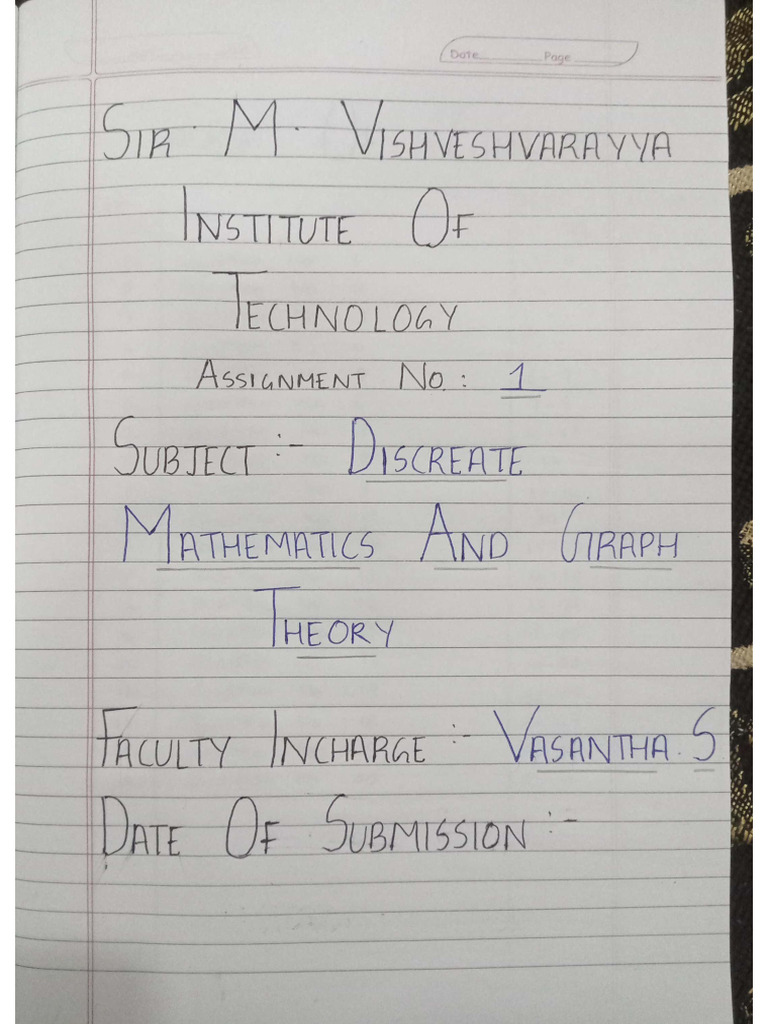 Date Page
SIR. M. VISHVESHVARAYYA
INSTITUTE OF
TECHNOLOGY
ASSIGNMENT NO.: 1
SUBJECT :- DISCREATE
MATHEMATICS AND GRAPH
THEORY
FACULTY INCHARGE :- VASANTHA. S
DATE OF SUBMISSION :-